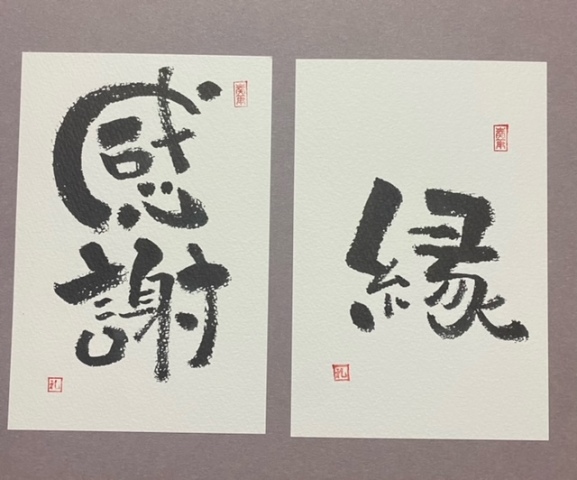 感
謝
縁